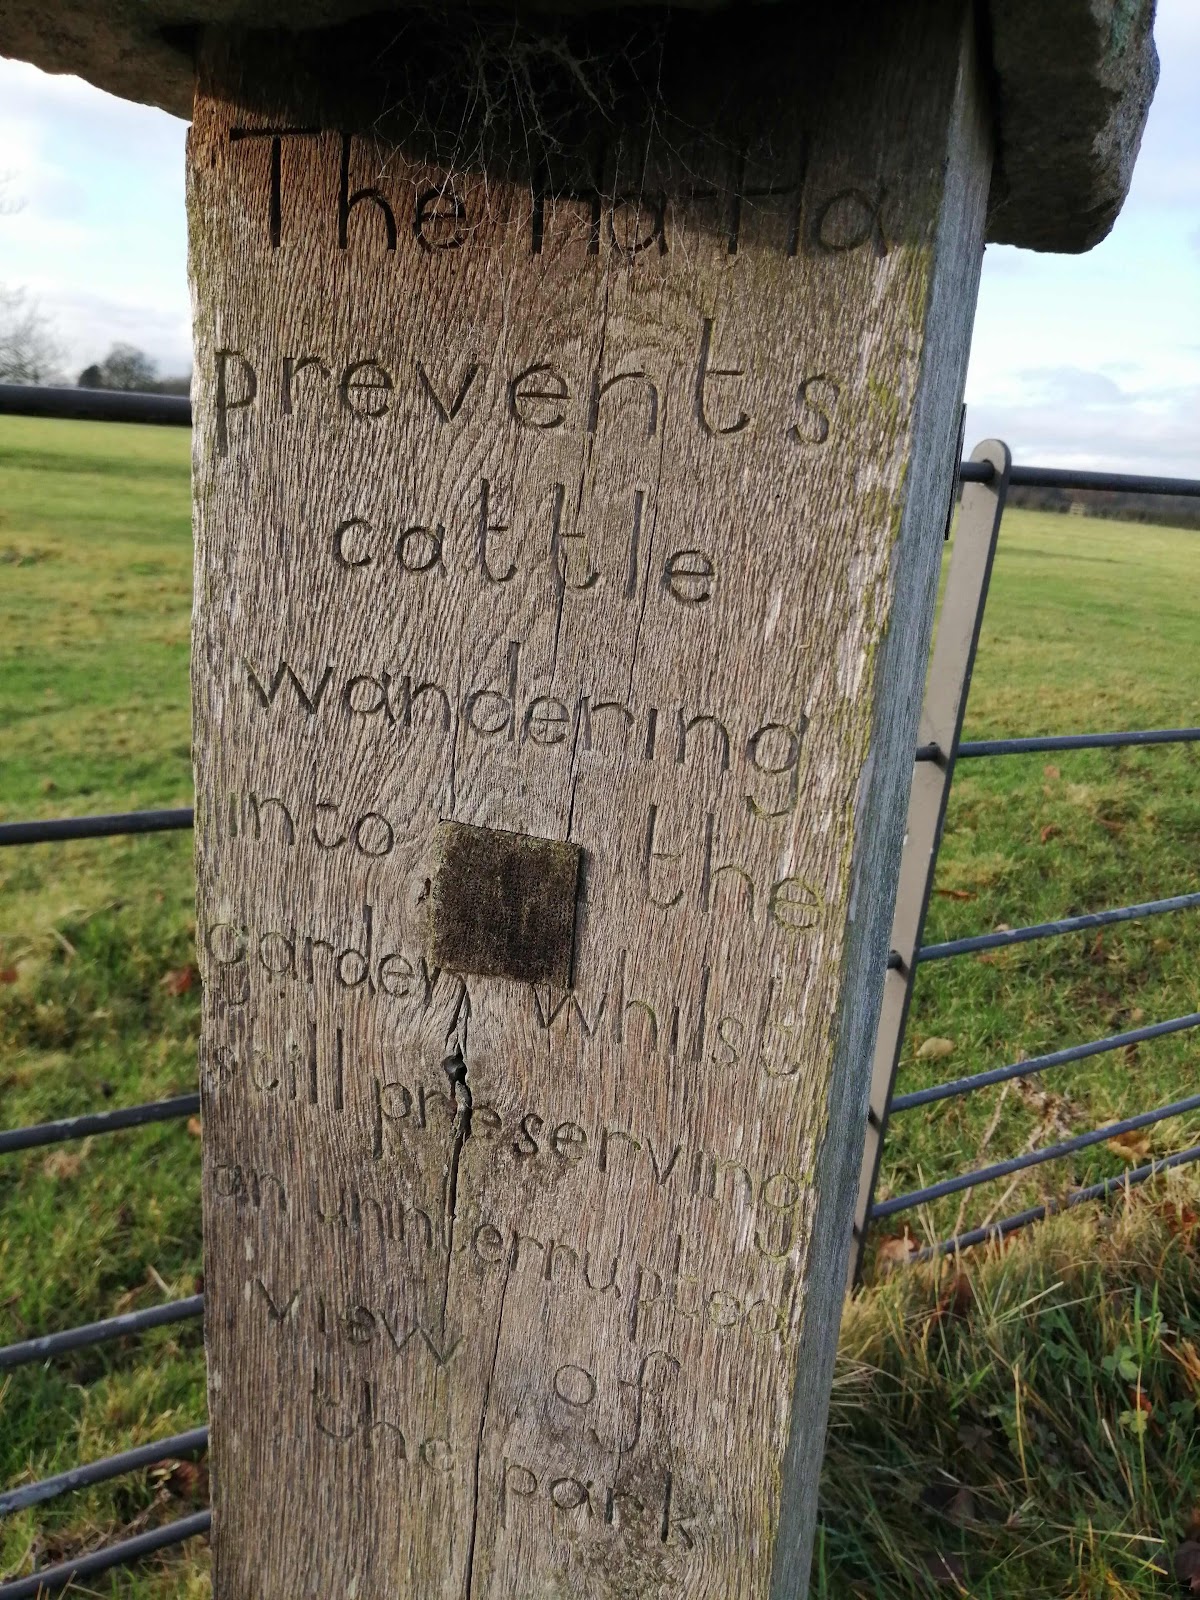 The HaHa
prevents
cattle
wandering
into the
garden whilst
still preserving
an uninterrupted
view of
the park